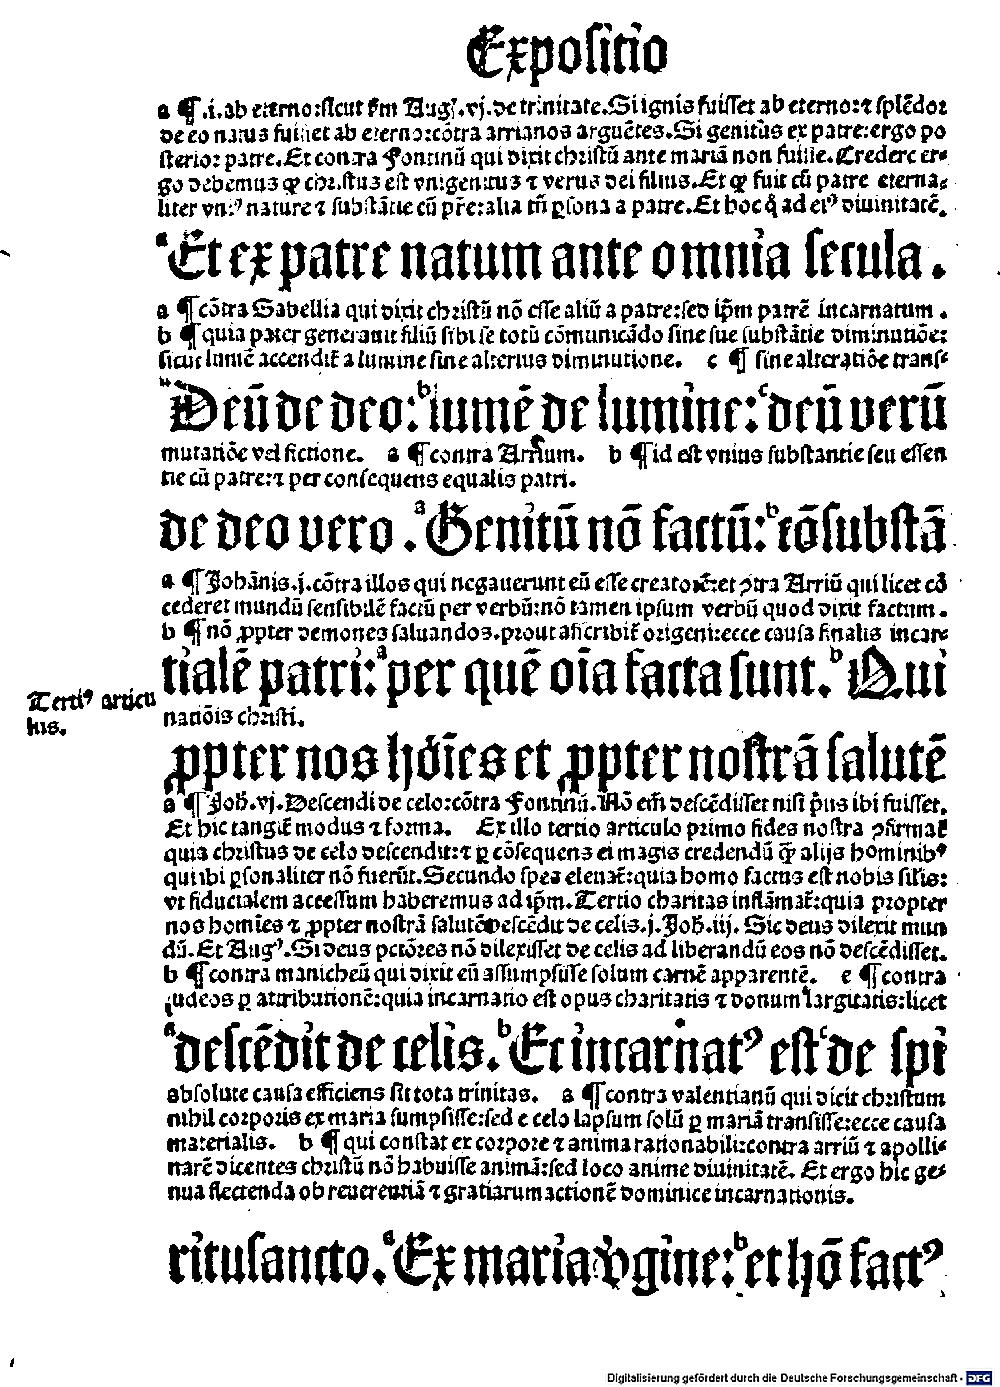 Expositio
a ¶ .i. ab eterno: sicut scd'm Augꝰ. vj. de trinitate. Si ignis fuisset ab eterno: ⁊ splēdor
de eo natus fuisset ab eterno: cōtra arrianos arguētes. Si genitus ex patre: ergo po
sterior patre. Et contra Fontinū qui dixit christū ante mariā non fuisse. Credere er-
go debemus ꝙ christus est vnigenitus ⁊ verus dei filius. Et ꝙ fuit cū patre eterna-
liter vniꝰ nature ⁊ substātie cū pr̄e: alia tn̄ ꝑsona a patre. Et hoc q̇ ad eiꝰ diuinitatē.
a Et ex patre natum ante omnia secula.
a ¶ cōtra Sabelliā qui dixit christū nō esse aliū a patre: sed ip̄m patrē incarnatum.
b ¶ quia pater generauit filiū sibi se totū cōmunicādo sine sue substātie diminutiōe:
sicut lumē accendit̄ a lumine sine alterius diminutione. c ¶ sine alteratiōe trans-
a Deū de deo: b lumē de lumine: c deū verū
mutatiōe vel fictione. a ¶ contra Arrium. b ¶ id est vnius substantie seu essen
tie cū patre: ⁊ per consequens equalis patri.
de deo vero. a Genitū nō factū: b cōsubstā
a ¶ Johānis .j. cōtra illos qui negauerunt eū esse creatorē: et ꝯtra Arriū qui licet cō
cederet mundū sensibilē factū per verbū: nō tamen ipsum verbū quod dixit factum.
b ¶ nō ꝓpter demones saluandos. prout ascribit̄ origeni: ecce causa finalis incar-
tialē patri: a per quē oīa facta sunt. b Qui
Tertiꝰ articu
lus.
nationis christi.
ꝓpter nos hōīes et ꝓpter nostrā salutē
a ¶ Joh. vj. Descendi de celo: cōtra Fontinū. Nō em̄ descēdisset nisi p̄us ibi fuisset.
Et hic tangit̄ modus ⁊ forma. Ex illo tertio articulo primo fides nostra ꝯfirmat̄
quia christus de celo descendit: ⁊ ꝑ cōsequens ei magis credendū ꝙ̄ alijs hominibꝰ
qui ibi ꝑsonaliter nō fuerūt. Secundo spes eleuat̄: quia homo factus est nobis silis:
vt fiducialem accessum haberemus ad ip̄m. Tertio charitas inflāmat̄: quia propter
nos homīes ⁊ ꝓpter nostrā salutē descēdit de celis. j. Joh. iij. Sic deus dilexit mun
dū. Et Augꝰ. Si deus pctōres nō dilexisset de celis ad liberandū eos nō descēdisset.
b ¶ contra manicheū qui dixit eū assumpsisse solum carnē apparentē. c ¶ contra
judeos ꝑ attributionē: quia incarnatio est opus charitatis ⁊ donum largitatis: licet
a descēdit de celis. b Et incarnatꝰ est c de spi
absolute causa efficiens sit tota trinitas. a ¶ contra valentianū qui dicit christum
nihil corporis ex maria sumpsisse: sed e celo lapsum solū ꝑ mariā transisse: ecce causa
materialis. b ¶ qui constat ex corpore ⁊ anima rationabili: contra arriū ⁊ apolli-
narē dicentes christū nō habuisse animā: sed loco anime diuinitatē. Et ergo hic ge-
nua flectenda ob reuerentiā ⁊ gratiarum actionē dominice incarnationis.
ritusancto. a Ex maria v̓gine: b et hō factꝰ
Digitalisierung gefördert durch die Deutsche Forschungsgemeinschaft - DFG